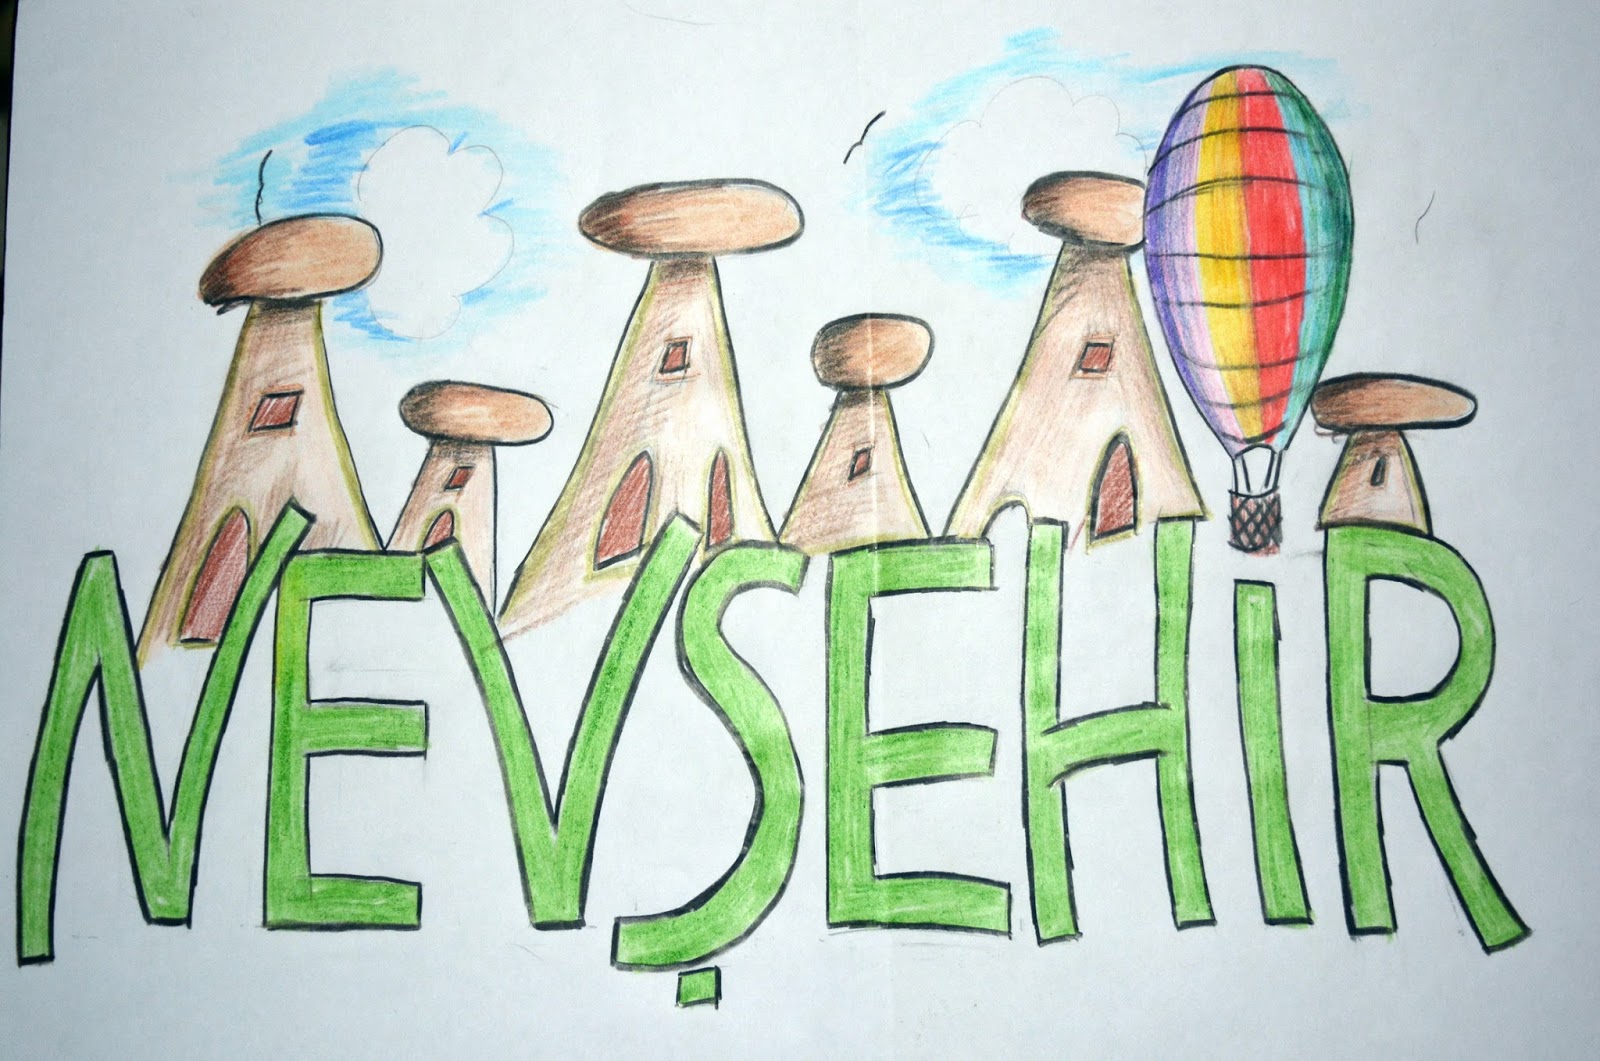 NEVŞEHİR